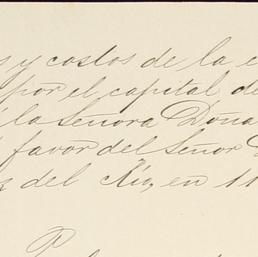 s y costos de la e
por el capital de
la Señora Doña
favor del Señor D
del Río, en 11
P